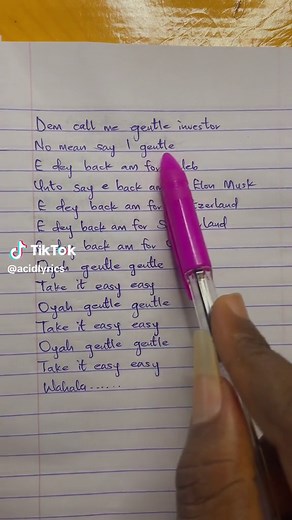 Dem call me gentle investor
No mean say I gentle
E dey back am for
Unto say e back am Elon Musk
E dey back am for
E dey back am for
dey back am for
gentle gentle
Take it easy easy
Oyah gentle gentle
Take it easy easy
Oyah gentle gentle
Take it easy easy
Wahala......
TikTok
@acidlyrics